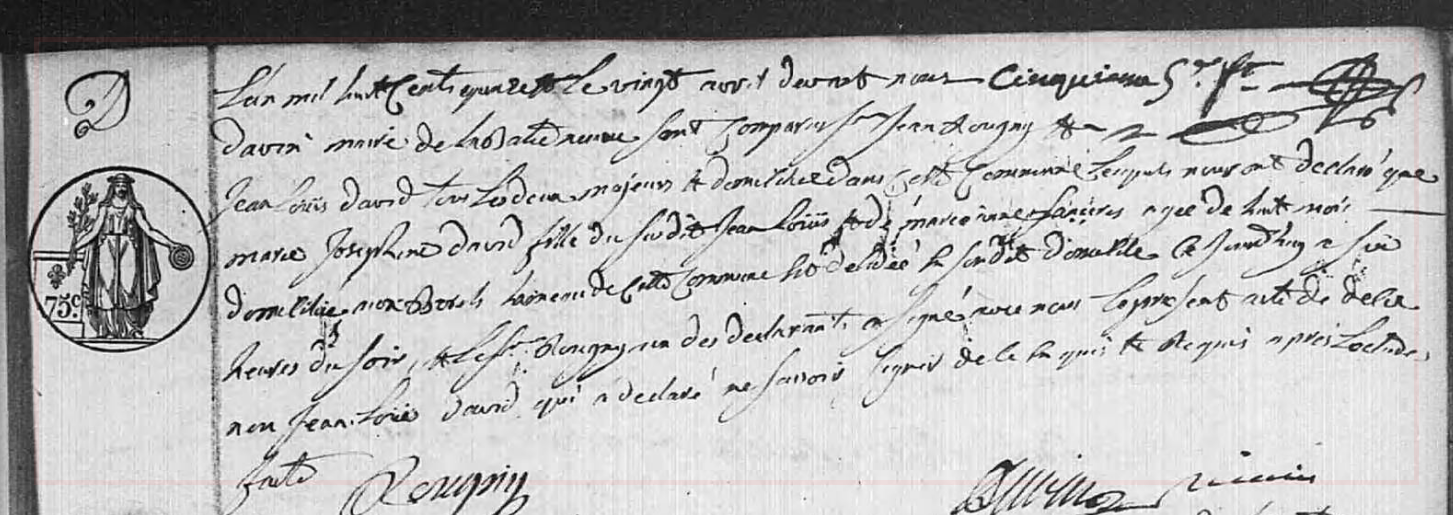 D
75.c
L'an mil huit Cent quinze et Le vingt avril devant nous Cinquieme
Davin maire de La Batie neuve sont Comparus Sr Jean Rougny et
Jean Louis david tous Les deux majeurs et domiciliés dans Cette Commune Lesquels nous ont déclaré que
marie Josephine david fille du susdit Jean Louis et de marie anne agée de huit mois
domiciliée hameau de Cette Commune est décédée Le susdit domicille Ce Jourd'huy a six
heures du soir, et Le Sr. Rougny un des declarants a signé avec nous Le present acte de deces
non Jean Louis david qui a declaré ne savoir signer de ce enquis et Requis après Lecture
faite Rougny Davin maire